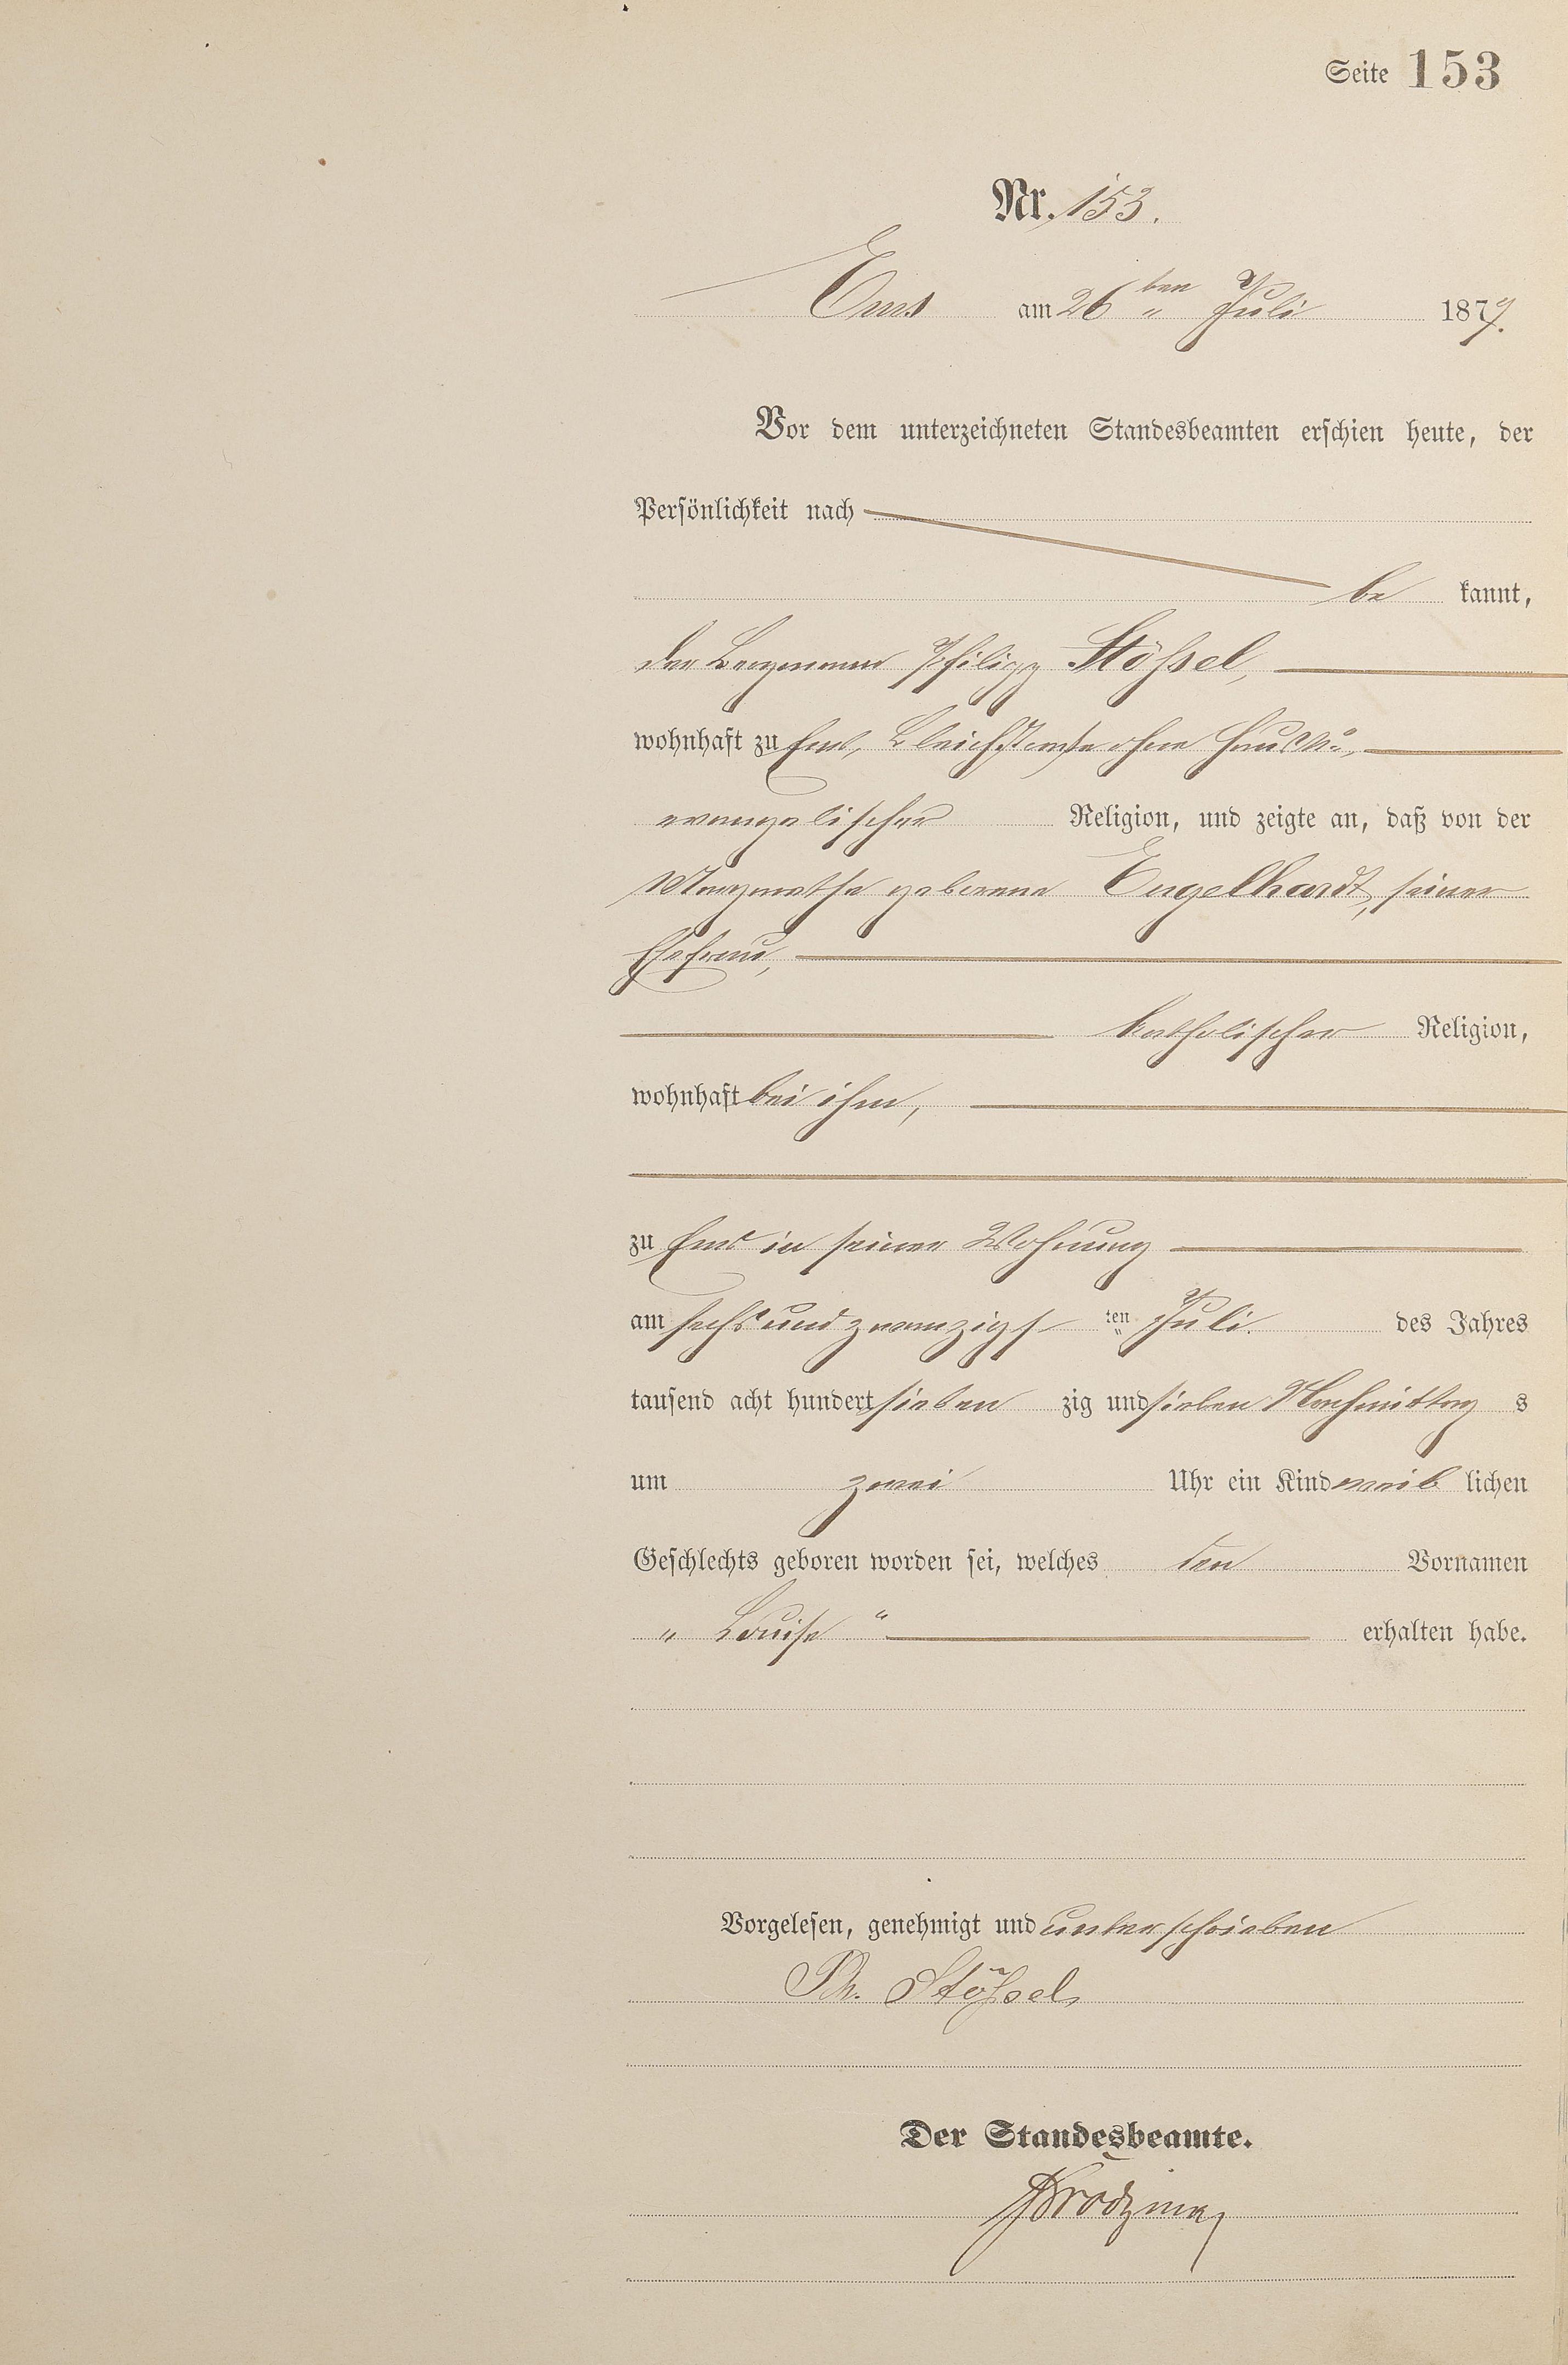 Seite 153
Nr. 153.
Ems am 26ten Juli 1877.
Vor dem unterzeichneten Standesbeamten erschien heute, der
Persönlichkeit nach
be kannt,
der Bergmann Philipp Stößel,
wohnhaft zu Ems, Bleichstraße ohne Haus No,
evangelischer Religion, und zeigte an, daß von der
Margaretha geborene Engelhardt, seiner
Ehefrau,
katholischer Religion,
wohnhaft bei ihm,
zu Ems in seiner Wohnung
am sechsundzwanzigs ten Juli des Jahres
tausend acht hundert sieben zig und sieben Nachmittag s
um zwei Uhr ein Kind weib lichen
Geschlechts geboren worden sei, welches den Vornamen
„ Louise “ erhalten habe.
Vorgelesen, genehmigt und unterschrieben
Ph. Stößel
Der Standesbeamte.